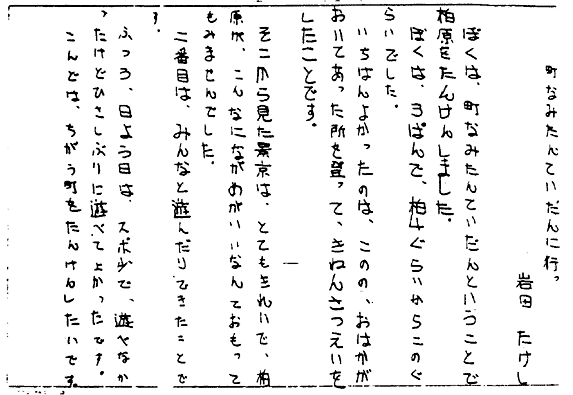 町なみたんていだんに行っ
岩田 たけし
ぼくは、町なみたんていだんということで
柏原をたんけんしました。
ぼくは、3ぱんで、柏4ぐらいからこのぐ
らいでした。
いちばんよかったのは、このの、おはかが
おいてあった所を登って、きねんさつえいを
したことです。
そこから見た景京は、とてもきれいで、柏
原が、こんなにながめがいいなんておもって
もみませんでした。
二番目は、みんなと遊んだりできたことで
す。
ふつう、日よう日は、スポ少で、遊べなか
ったけどひさしぶりに遊べてよかったです。
こんどは、ちがう町をたんけんしたいです。